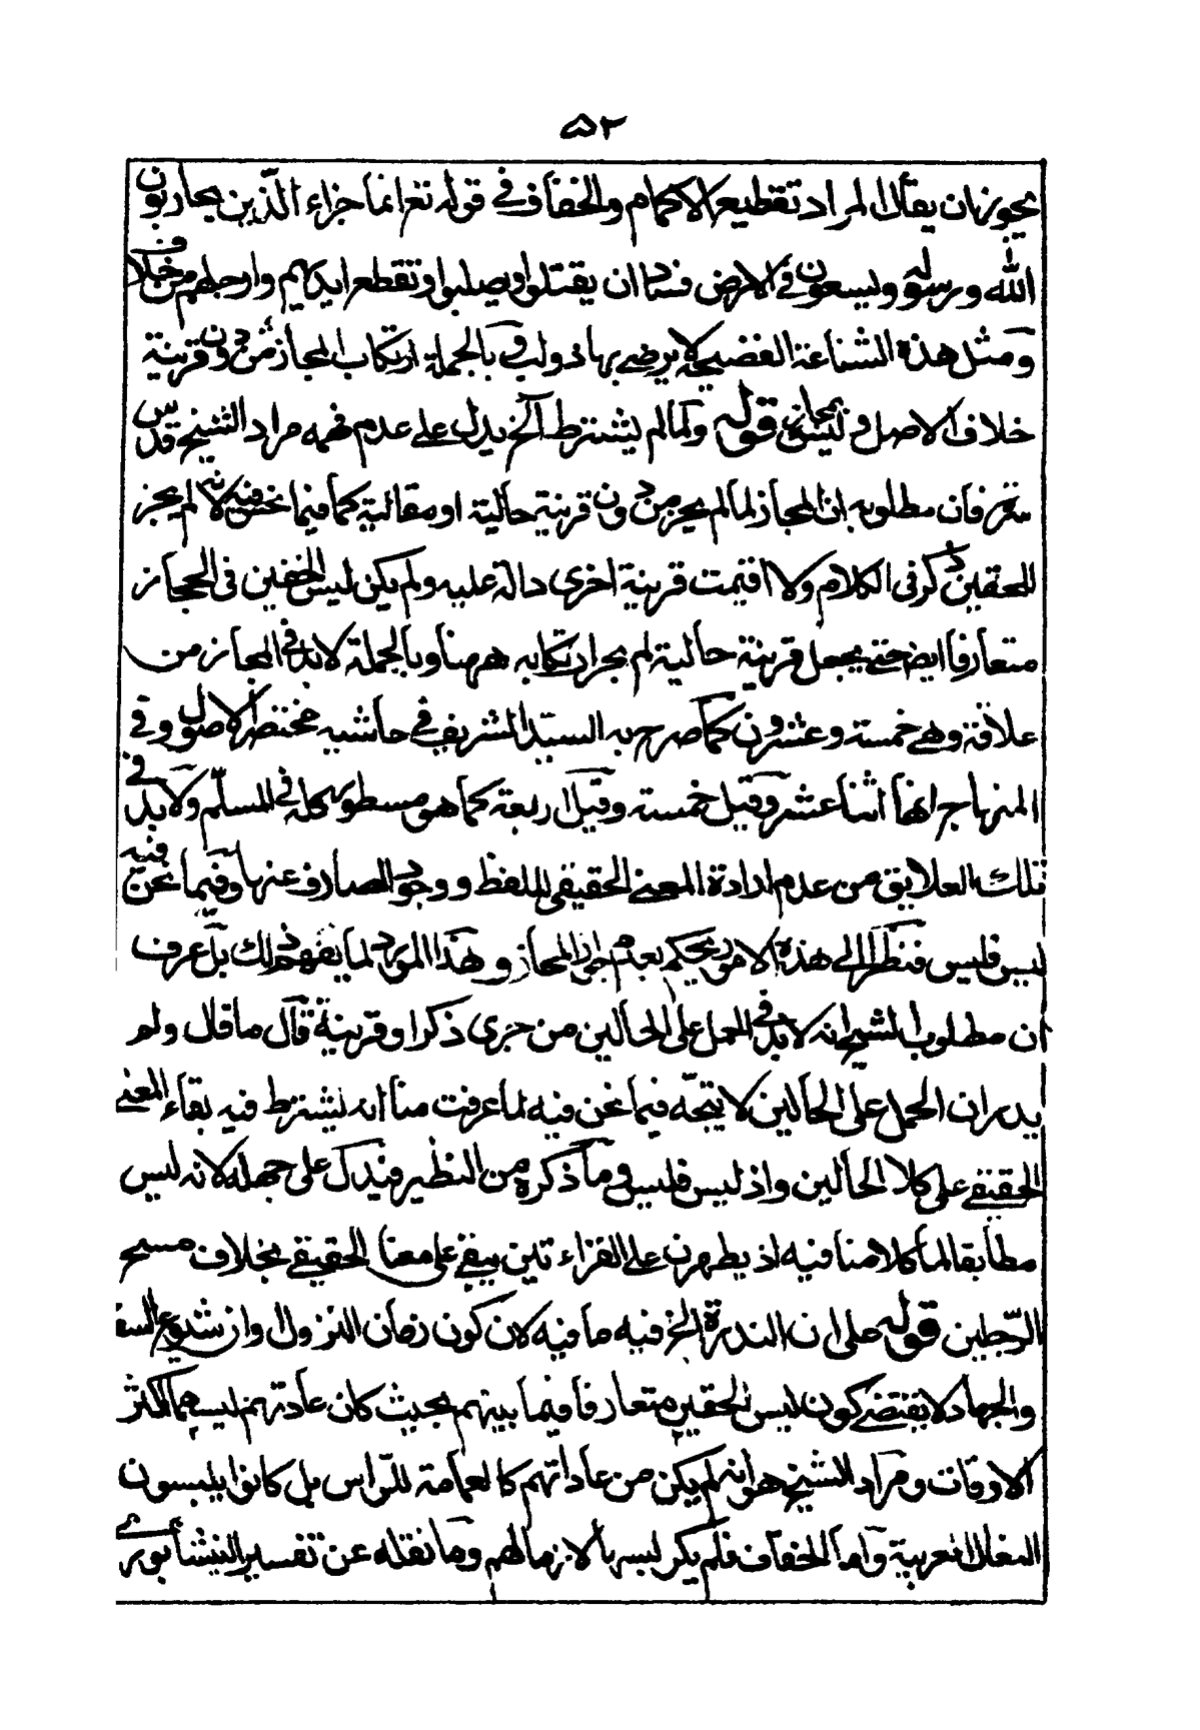 ٥٢
يجوز ان يقال المراد تقطيع الاكمام والخفاف في قوله تع انما جزاء الّذين يحاربون
الله ورسوله ويسعون في الارض فسادا ان يقتلوا او يصلبوا او تقطع ايديهم وارجلهم من خلاف
ومثل هذه الشناعة الفضيحة لا يرضى بها ذو لب وبالجملة ارتكاب المجاز من دون قرينة
خلاف الاصل قوله ولما لم يشترط الخ يدل على عدم فهمه مراد الشيخ قدس
سره فان مطلوبه ان المجاز لما لم يجز من دون قرينة حالية او مقالية كما فيما نحن فيه لانه لم يجز
للخفين ذكر في الكلام ولا اقيمت قرينة اخرى دالة عليه ولم يكن لبس الخفين في الحجاز
متعارفا ايضا حتى يجعل قرينة حالية لم يجز ارتكابه ههنا وبالجملة لا بد في المجاز من
علاقة وهي خمسة وعشرون كما صرح به السيّد الشريف في حاشية مختصر الاصول وفي
المنهاج انها اثنا عشر وقيل خمسة وقيل اربعة كما هو مسطور كله في المسلّم ولا بد في
تلك العلايق من عدم ارادة المعنى الحقيقي للفظ ووجود الصارف عنها وفيما نحن فيه
ليس فليس فنظرا الى هذه الامور يحكم بعدم جواز المجاز وهذا المورد لما يفهم ذلك بل عرف
ان مطلوب الشيخ انه لا بد في الحمل على الحالين من جرى ذكر او قرينة قال ما قال ولم
يدر ان الحمل على الحالين لا يتجه فيما نحن فيه لما عرفت منا انه يشترط فيه بقاء المعنى
الحقيقي على كلا الحالين واذ ليس فليس وما ذكره من النظير فيدل على جهله لانه ليس
مطابقا لما كلامنا فيه اذ يطهرن على القراءتين يبقى على معناه الحقيقي بخلاف مسح
الرّجلين قوله على ان الندرة الخ فيه ما فيه لان كون زمان النزول اوان شيوع السفر
والجهاد لا يقتضي كون لبس الخفين متعارفا فيما بينهم بحيث كان عادتهم لبسهما اكثر
الاوقات ومراد الشيخ هو انه لم يكن من عاداتهم كالعمامة للرّاس بل كانوا يلبسون
النعال العربية واما الخفاف فلم يكن لبسها لازما لهم وما نقله عن تفسير النيشابوري